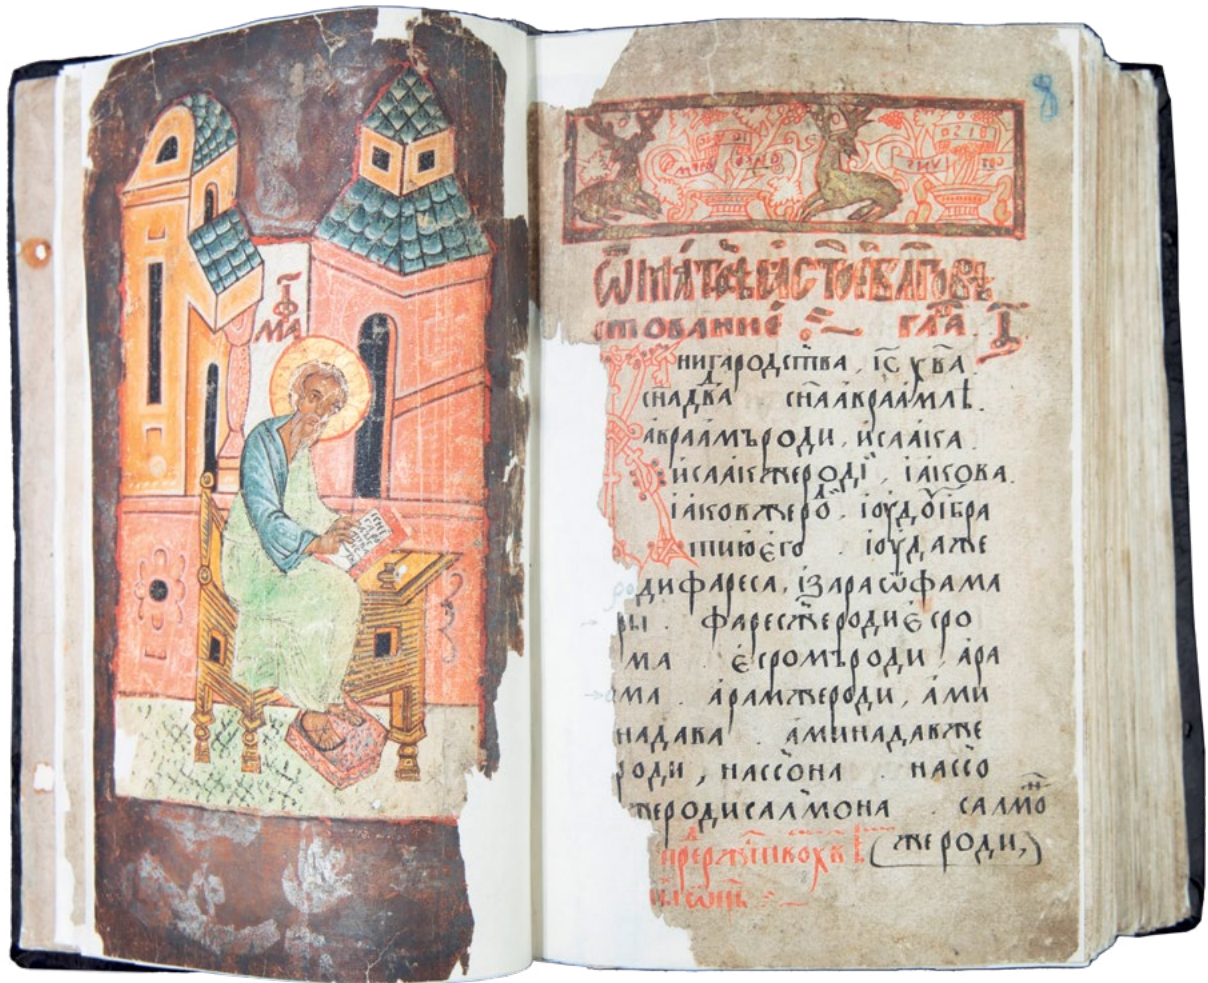 МА
8
Ѿ МАТѲЕꙖ СТ҃ОЕ БЛ҃ГОВѢ
СТОВАНИЕ ГЛ҃А І
нигародства, іс҃ хв҃а.
сн҃адв҃а сн҃аавраамлѣ.
авраамъроди, исаака
исаакжероді, іакова.
іаковжеро, іоудоібра
тиюєго. іоудаже
родифареса, ізараѿфама
ры. фаресжеродиєсро
ма. єсромъроди, ара
ама. арамжероди, ами
надава. аминадавже
роди, нассона. нассо
жеродисалмона. салмо
(жероди,)